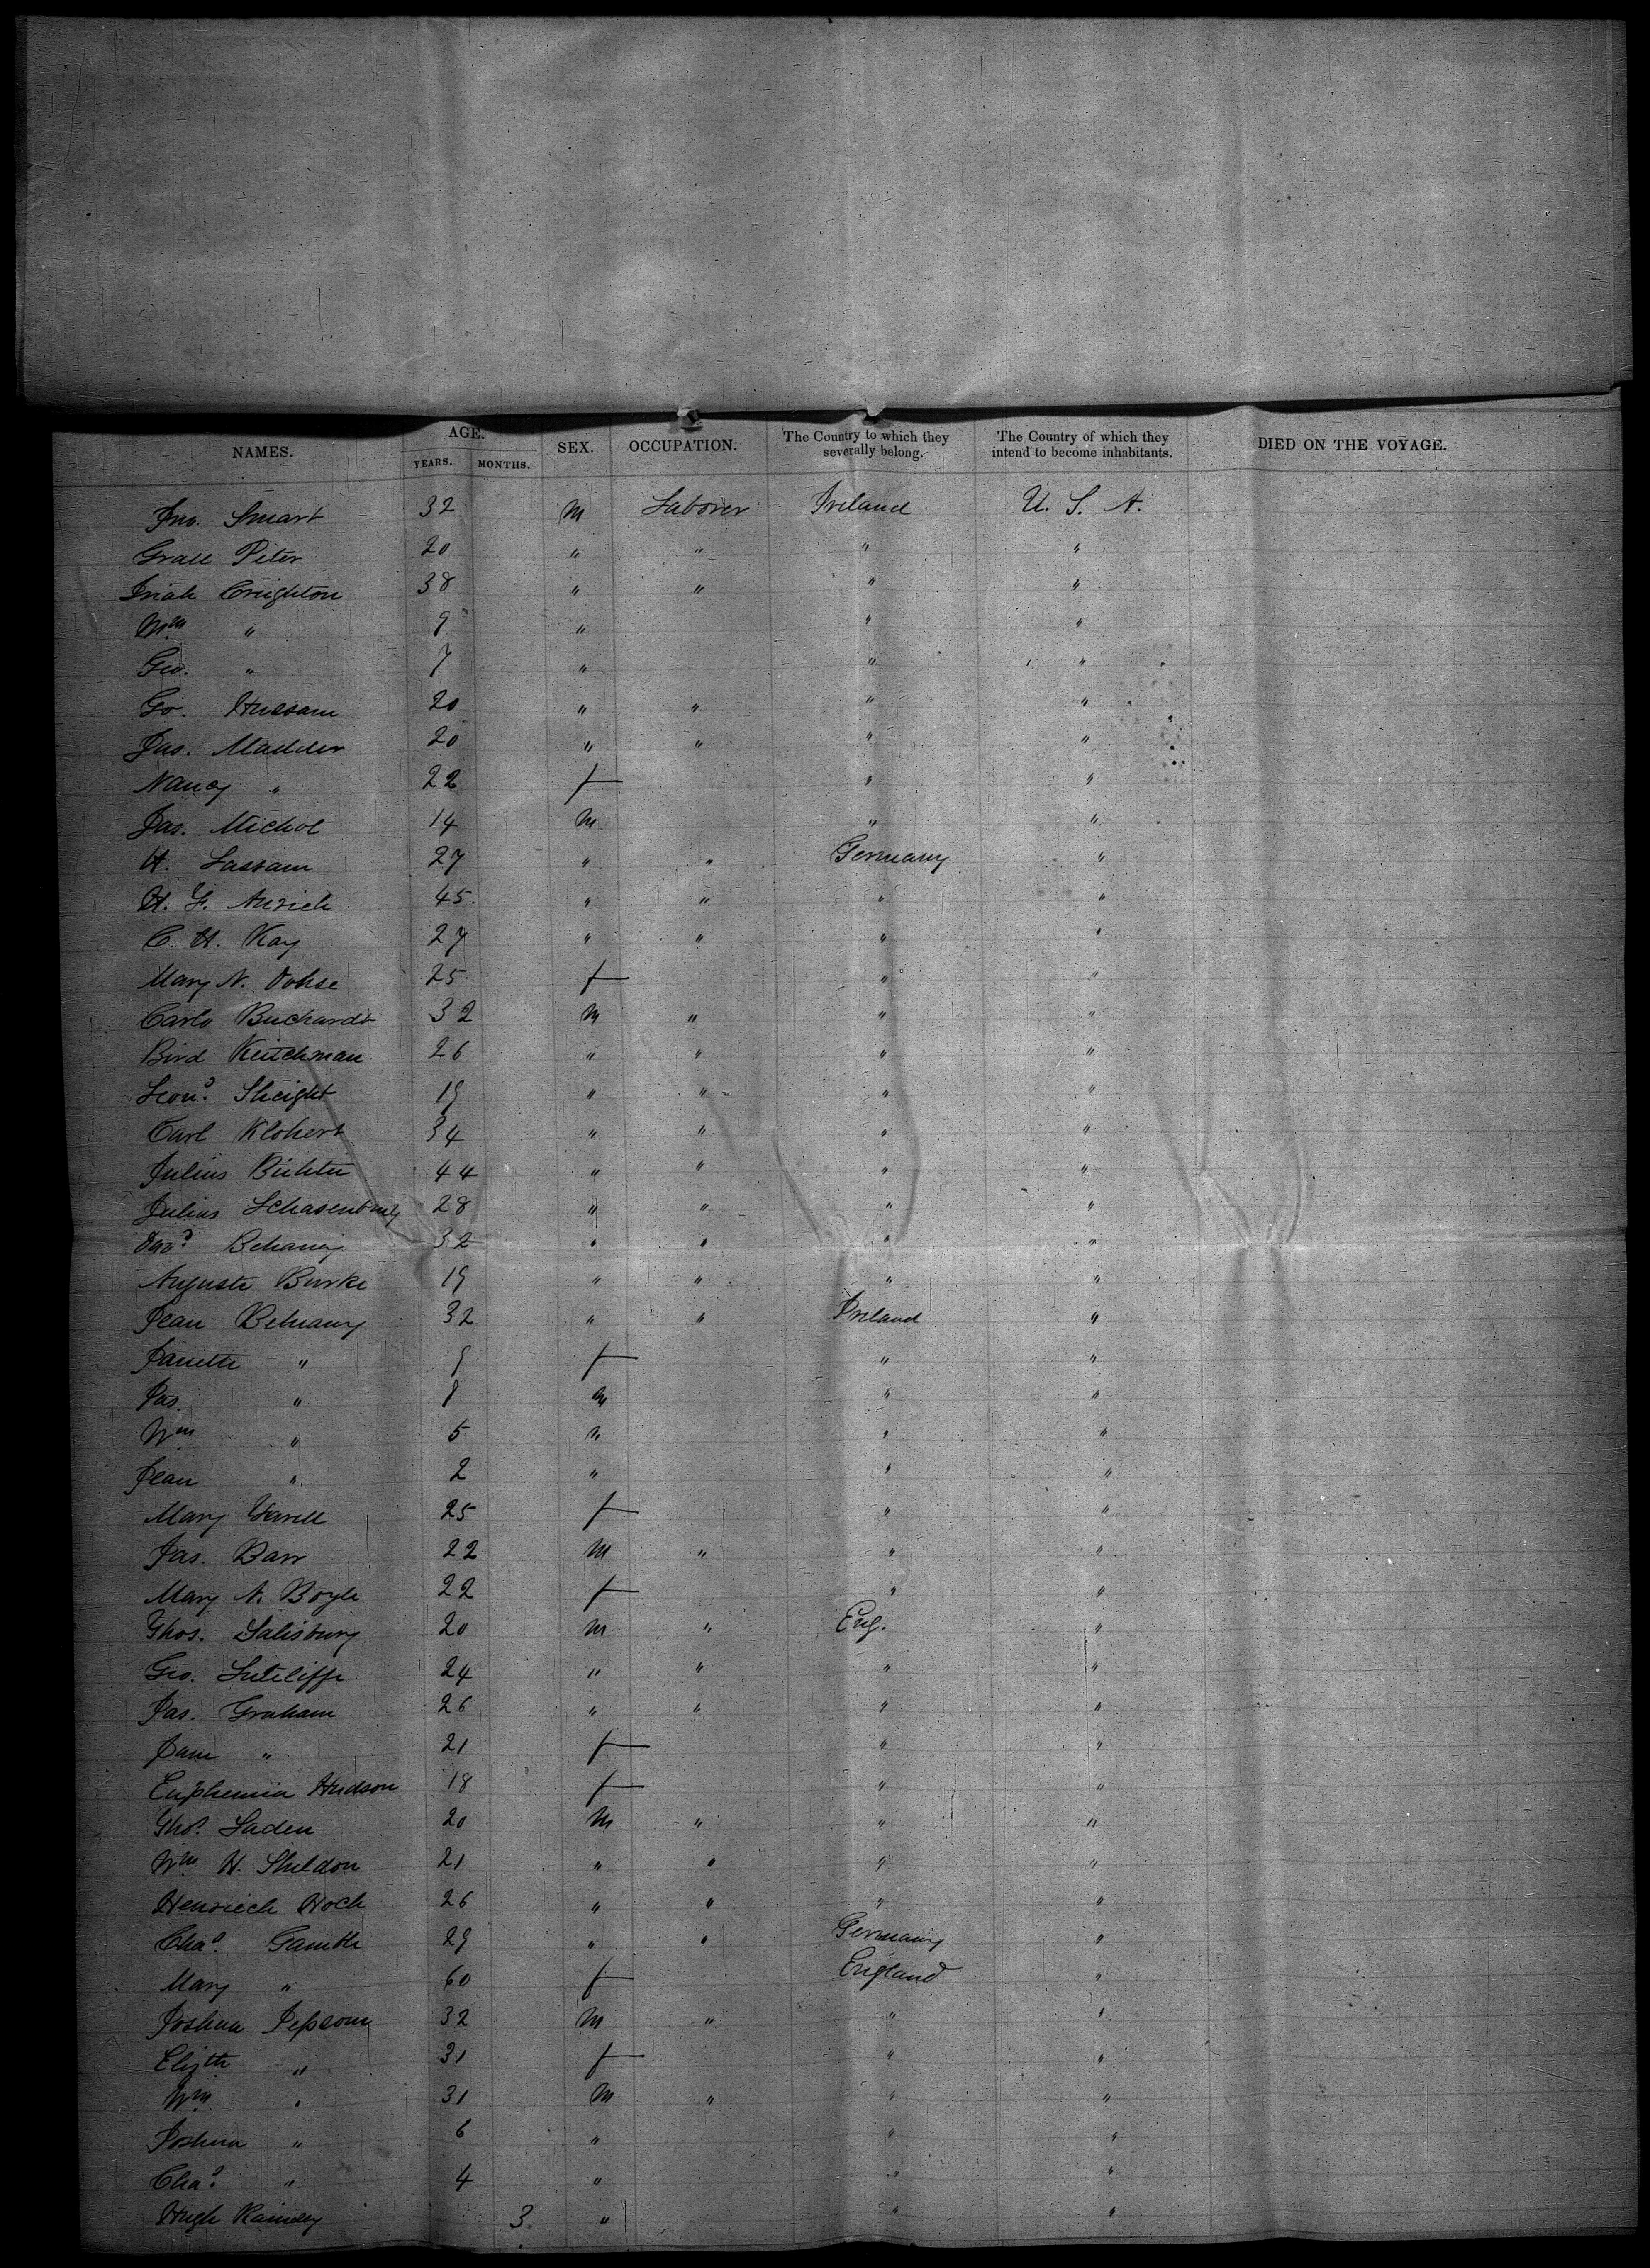 NAMES. AGE. SEX. OCCUPATION. The Country to which they severally belong. The Country of which they intend to become inhabitants. DIED ON THE VOYAGE.
YEARS. MONTHS.
Jno. Smart 32 M Laborer Ireland U. S. A.
Peter 20 " " " "
Creighton 38 " " " "
Wm " 9 " " "
Geo. " 7 " " "
Go. 20 " " " "
Jas. Madder 20 " " " "
Nancy " 22 f " "
Jas. Michol 14 M " "
H. Lassam 27 " " Germany "
H. F. 45 " " " "
C. H. Kay 27 " " " "
Mary N. Dohse 25 f " "
Carlo Buchardt 32 M " " "
Bird Keitchman 26 " " " "
Leond. Sheight 19 " " " "
Carl Klohert 34 " " " "
Julius 44 " " " "
Julius 28 " " " "
32 " " " "
Auguste Burke 19 " " " "
Jean 32 " " Ireland "
Janette " 9 f " "
Jas. " 8 M " "
Wm " 5 " " "
Jean " 2 " " "
Mary 25 f " "
Jas. Barr 22 M " " "
Mary A. Boyle 22 f " "
Thos. Salisbury 20 M " Eng. "
Geo. Sutcliffe 24 " " " "
Jas. Graham 26 " " " "
Jane " 21 f " "
Euphemia Hudson 18 f " "
Thos. Laden 20 M " " "
Wm H. Sheldon 21 " " " "
Henriech Hoch 26 " " " "
Chas. Gamble 29 " " Germany "
Mary " 60 f England "
Joshua Jepson 32 M " " "
Elizth " 31 f " "
Wm " 31 M " " "
Joshua " 6 " " "
Chas. " 4 " " "
Hugh 3 " " "